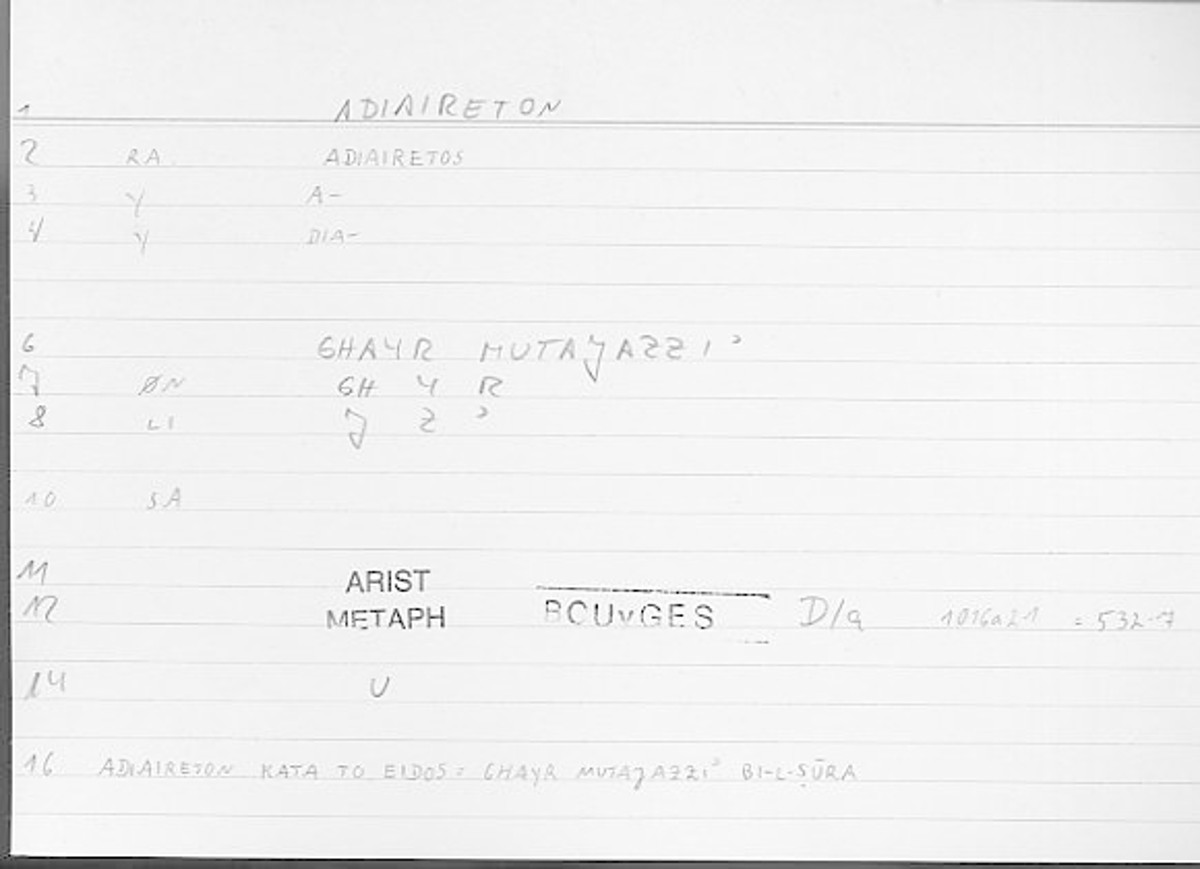 1 ADIAIRETON
2 RA ADIAIRETOS
3 Y A-
4 Y DIA-
6 GHAYR MUTAJAZZI'
7 ØN GH Y R
8 LI J Z '
10 SA
11 ARIST
12 METAPH BOUYGES D/a 1016a21 = 532.7
14 U
16 ADIAIRETON KATA TO EIDOS = GHAYR MUTAJAZZI' BI-L-ṢŪRA